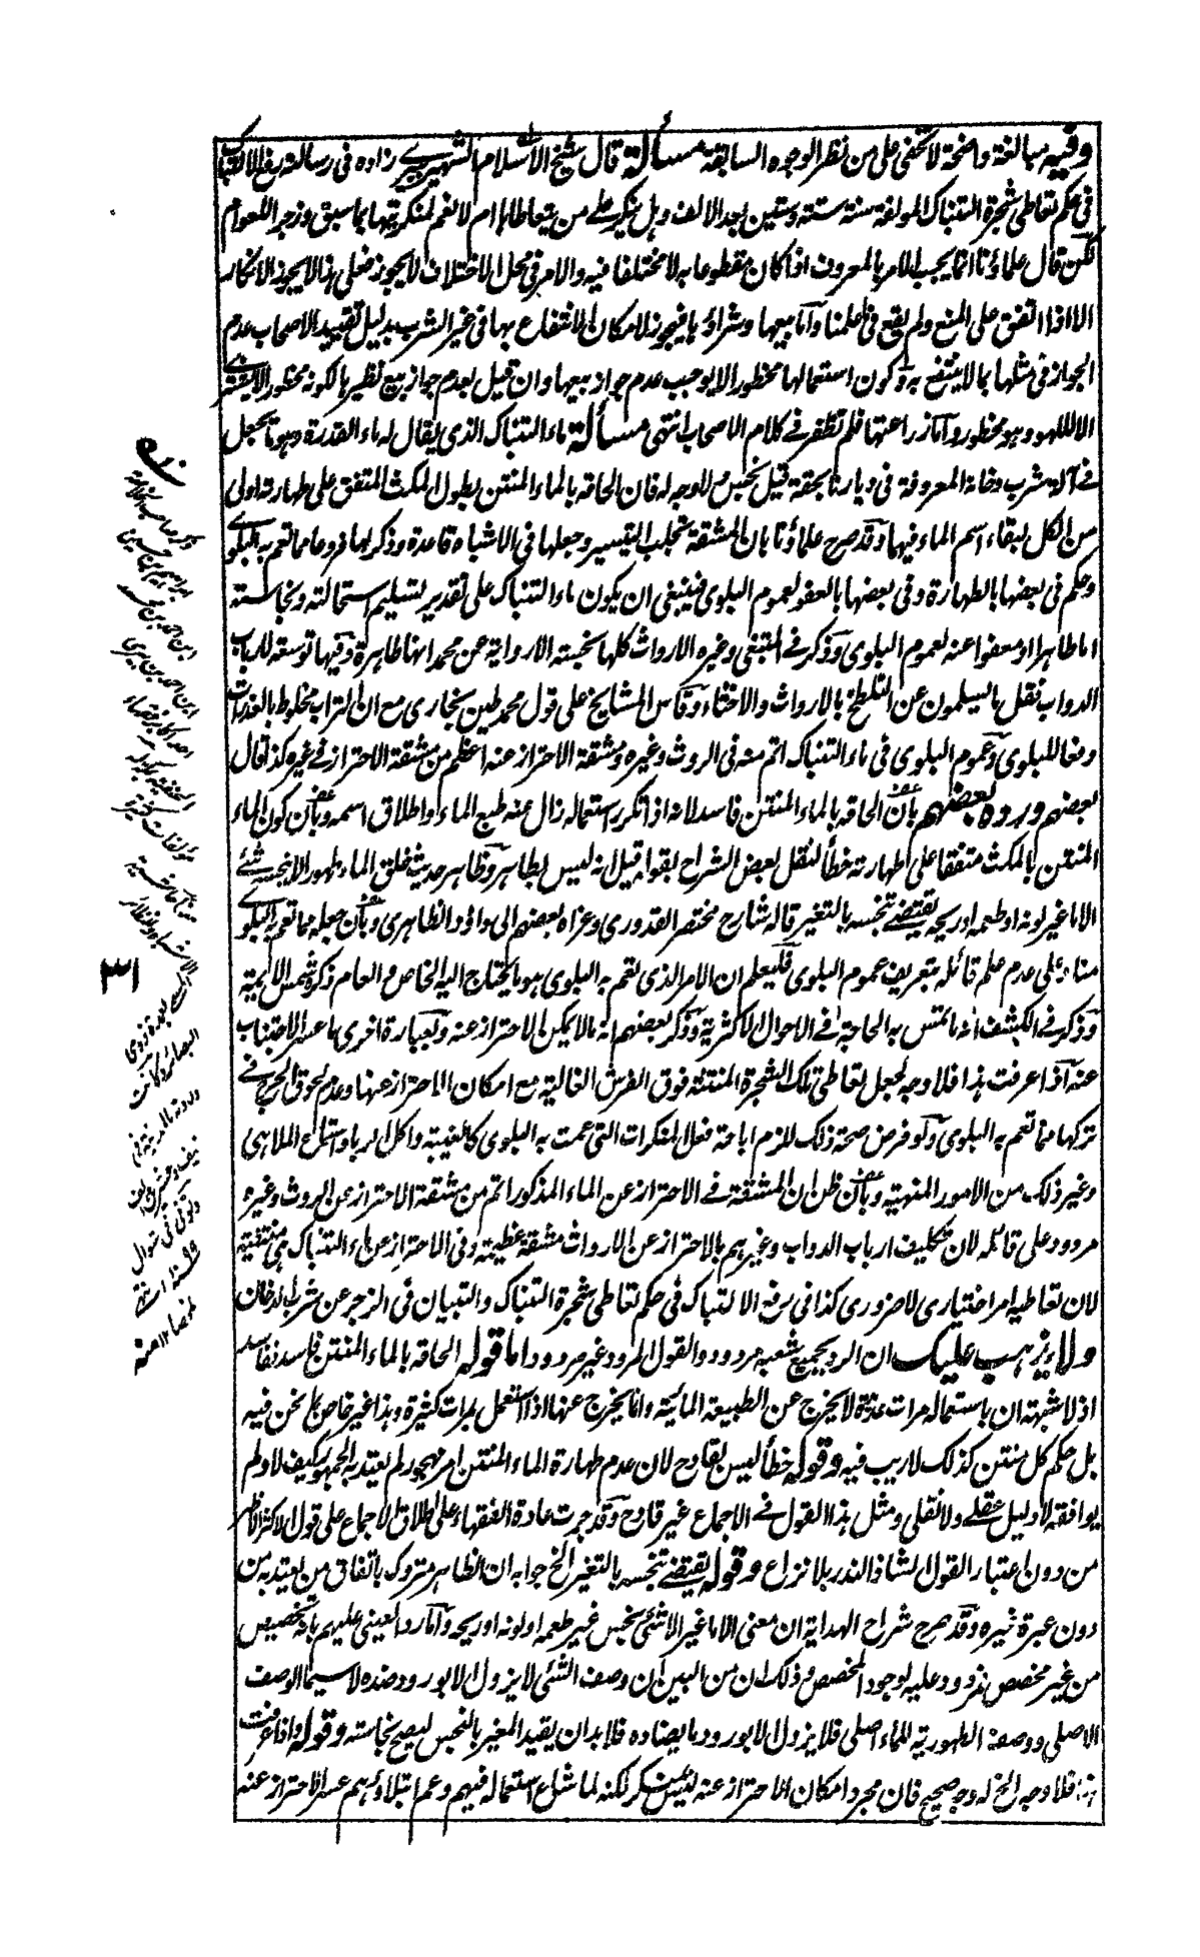 وفيه مبالغة واضحة لا تخفى على من نظر الوجوه السابقة مسألة قال شيخ الاسلام الشهير ببيري زاده فى رسالته رفع الاشتباك
فى حكم تعاطى شجرة التنباك المولفة سنة ستة وستين بعد الالف وهل ينكر على من يتعاطاها ام لا نعم لمنكريتها بما سبق وزجر اللعوام
لكن قال علماؤنا انما يجب الامر بالمعروف اذا كان مقطوعا به لا مختلفا فيه والامر فى محل الاختلاف لا يجوز فعلى هذا لا يجوز الانكار
الا اذا اتفق على المنع ولم يقع فى علمنا واما بيعها وشراؤها فيجوز لامكان الانتفاع بها فى غير الشرب بدليل تقييد الاصحاب عدم
الجواز فى مثلها بما لا ينتفع به وكون استعمالها محظورا لا يوجب عدم جواز بيعها وان قيل بعدم جواز بيع نظيرها لكونه محظورا لا يشترى
الا للهو وهو محظور واما زراعتها فلم تظفر فى كلام الاصحاب انتهى مسألة ماء التنباك الذى يقال له ماء القدرة وهو ما يجعل
فى آلة شرب دخانة المعروفة فى ديارنا بحقة قيل نجس لا وجه له فان الحاقه بالماء المنتن بطول المكث المتفق على طهارته اولى
من الكل لبقاء اسم الماء فيها وقد صرح علماؤنا بان المشقة تجلب التيسير وجعلها فى الاشباه قاعدة وذكر لها فروعا مما تعم به البلوى
وحكم فى بعضها بالطهارة وفى بعضها بالعفو لعموم البلوى فينبغى ان يكون ماء التنباك على تقدير تسليم استحالته ونجاسته
اما طاهرا او معفوا عنه لعموم البلوى وذكر فى المبتغى وغيره الارواث كلها نجسة الا رواية عن محمد انها طاهرة وفيها توسعة لارباب
الدواب فقل ما يسلمون عن التلطخ بالارواث والاخثاء وقاس المشايخ على قول محمد طين بخارى مع ان التراب مخلوط بالعذرات
دفعا للبلوى وعموم البلوى فى ماء التنباك اتم منه فى الروث وغيره ومشقة الاحتراز عنه اعظم من مشقة الاحتراز فى غيره كذا قال
بعضهم ورده بعضهم بان الحاقه بالماء المنتن فاسد لانه اذا تكرر استعماله زال عنه طبع الماء واطلاق اسمه وبان كون الماء
المنتن بالمكث متفقا على طهارته خطأ لنقل بعض الشراح بقوله قيل انه ليس بطاهر وظاهر حديث خلق الماء طهورا لا ينجسه شئ
الا ما غير لونه او طعمه او ريحه يقتضى تنجسه بالتغير قاله شارح مختصر القدورى وعزاه بعضهم الى داؤد الظاهرى وبان جعله مما تعم به البلوى
مبناه على عدم علم قائله بتعريف عموم البلوى فليعلم ان الامر الذى تعم به البلوى هو ما يحتاج اليه الخاص والعام ذكره شمس الايمة
وذكر فى الكشف انه ما تمس به الحاجة فى الاحوال الاكثرية وذكر بعضهم انه ما لا يمكن الاحتراز عنه وبعبارة اخرى ما عسر الاجتناب
عنه اذا عرفت هذا فلا وجه لجعل تعاطى تلك الشجرة المنتنة فوق الفرش الغالية مع امكان الاحتراز عنها وعدم لحوق الحرج فى
تركها مما تعم به البلوى ولو فرض صحة ذلك للزم اباحة فعل المنكرات التى عمت به البلوى كالغيبة واكل الربا واستماع الملاهى
وغير ذلك من الامور المنهية وبان ظن ان المشقة فى الاحتراز عن الماء المذكور اتم من مشقة الاحتراز عن الروث وغيره
مردود على قائله لان تكليف ارباب الدواب وغيرهم بالاحتراز عن الارواث مشقة عظيمة وفى الاحتراز عن ماء التنباك هى منتفية
لان تعاطيه امر اختيارى لا ضرورى كذا فى رفع الاشتباك فى حكم تعاطى شجرة التنباك والتبيان فى الزجر عن شرب الدخان
ولا يذهب عليك ان الرد بجميع شعبه مردود والقول المردود غير مردود اما قوله الحاقه بالماء المنتن فاسد ففاسد
اذ لا شبهة ان باستعماله مرات عديدة لا يخرج عن الطبيعة المائية وانما يخرج عنها اذا استعمل بمرات كثيرة وهذا غير خاص بما نحن فيه
بل حكم كل منتن كذلك لا ريب فيه وقوله خطأ ليس بقادح لان عدم طهارة الماء المنتن امر مهجور لم يعتد به الجمهور كيف لا ولم
يوافقه لا دليل عقلى ولا نقلى ومثل هذا القول فى الاجماع غير قادح وقد جرت عادة الفقهاء على اطلاق الاجماع على قول الاكثر الاظهر
من دون اعتبار القول الشاذ الندر بلا نزاع وقوله يقتضى تنجسه بالتغير الخ جوابه ان الظاهر متروك باتفاق من يعتد به من
دون عبرة غيره وقد صرح شراح الهداية ان معنى الا ما غير الا شئ نجس غير طعمه او لونه او ريحه واما رد العينى عليهم بانه تخصيص
من غير مخصص فمردود عليه لوجود المخصص وذلك ان من البين ان وصف الشئ لا يزول الا بورود ضده لا سيما الوصف
الاصلى ووصفة الطهورية للماء اصلى فلا يزول الا بورود ما يضاده فلا بد ان يقيد المغير بالنجس ليصح نجاسته وقوله واذا عرفت
هذا فلا وجه الخ له وجه صحيح فان مجرد امكان الاحتراز عنه ليس بمنكر لكنه لما شاع استعماله فيهم وعم ابتلاؤهم عسر الاحتراز عنه
٣١